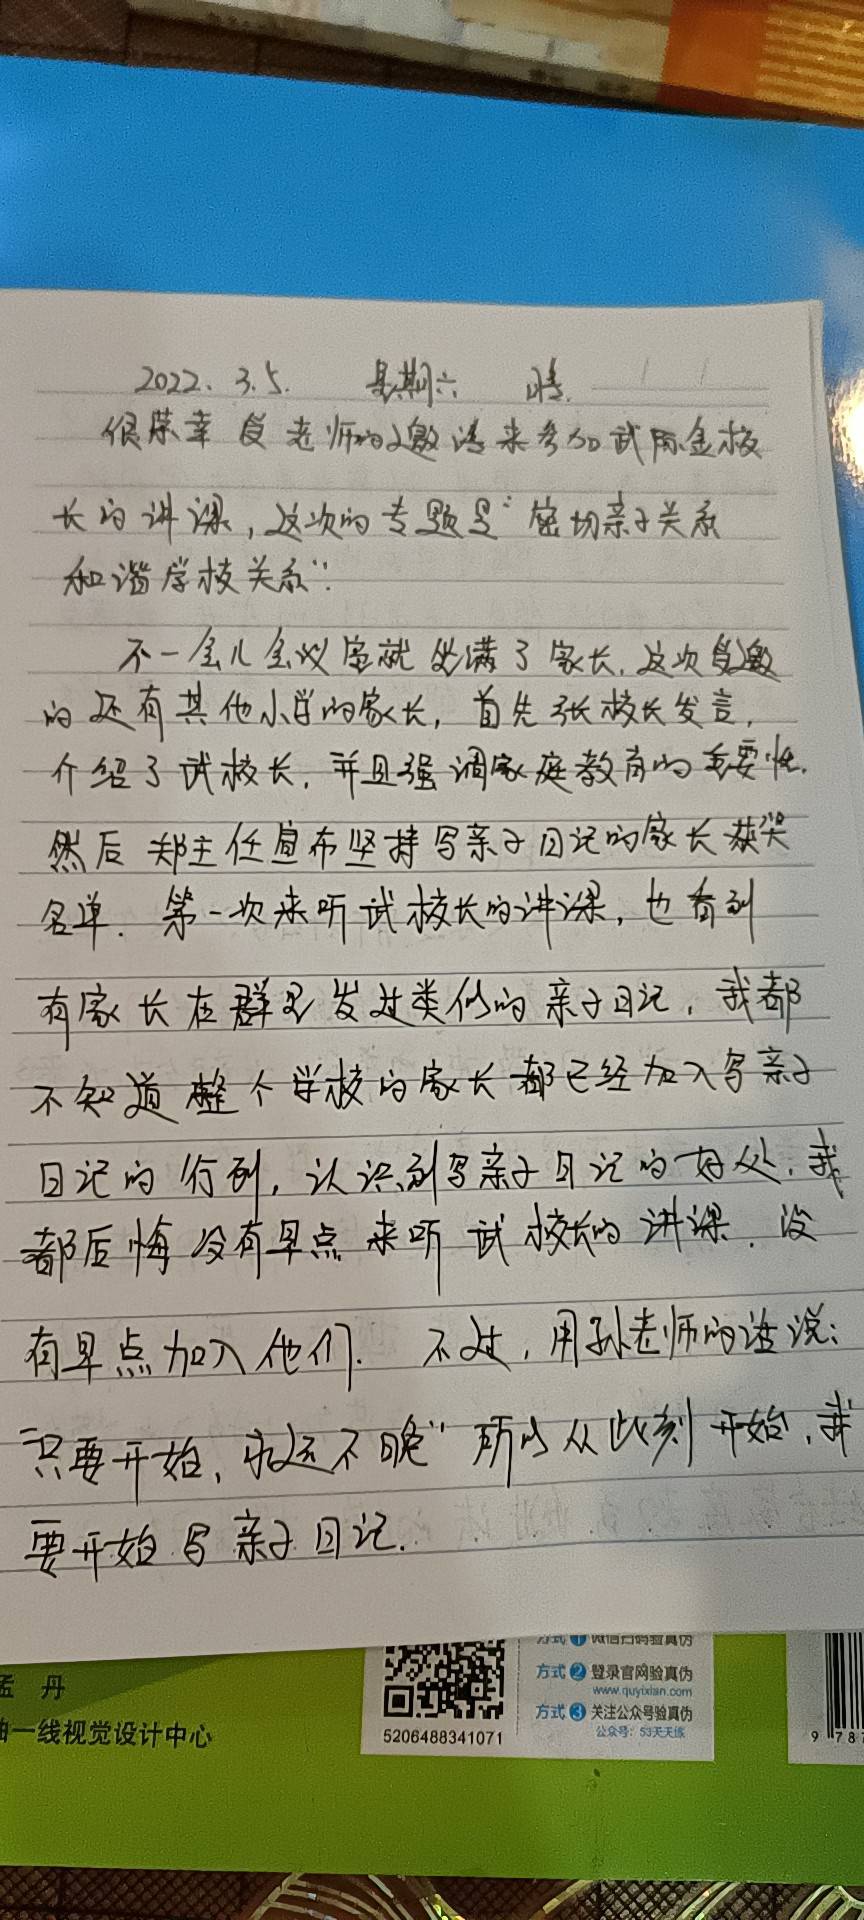 2022. 3.5. 星期六 晴.
很荣幸 受老师的邀请来参加武际金校
长的讲课，这次的专题是“密切亲子关系
和谐学校关系”.
不一会儿会议室就坐满了家长，这次受邀
的还有其他小学的家长，首先张校长发言，
介绍了武校长，并且强调家庭教育的重要性.
然后郑主任宣布坚持写亲子日记的家长获奖
名单. 第一次来听武校长的讲课，也看到
有家长在群里发过类似的亲子日记，我都
不知道整个学校的家长都已经加入写亲子
日记的行列，认识到写亲子日记的好处，我
都后悔没有早点来听武校长的讲课. 没
有早点加入他们. 不过，用孙老师的话说：
“只要开始，永远不晚”所以从此刻开始，我
要开始写亲子日记.
孟 丹
一线视觉设计中心
5206488341071
方式 1 微信扫码验真伪
方式 2 登录官网验真伪
www.quyixian.com
方式 3 关注公众号验真伪
公众号：53天天练
9 787